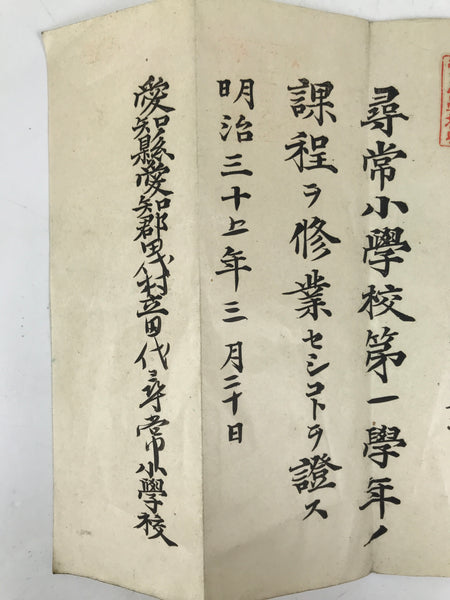 尋常小學校第一學年ノ
課程ヲ修業セシコトヲ證ス
明治三十七年三月二十日
愛知縣愛知郡田代村立田代尋常小學校